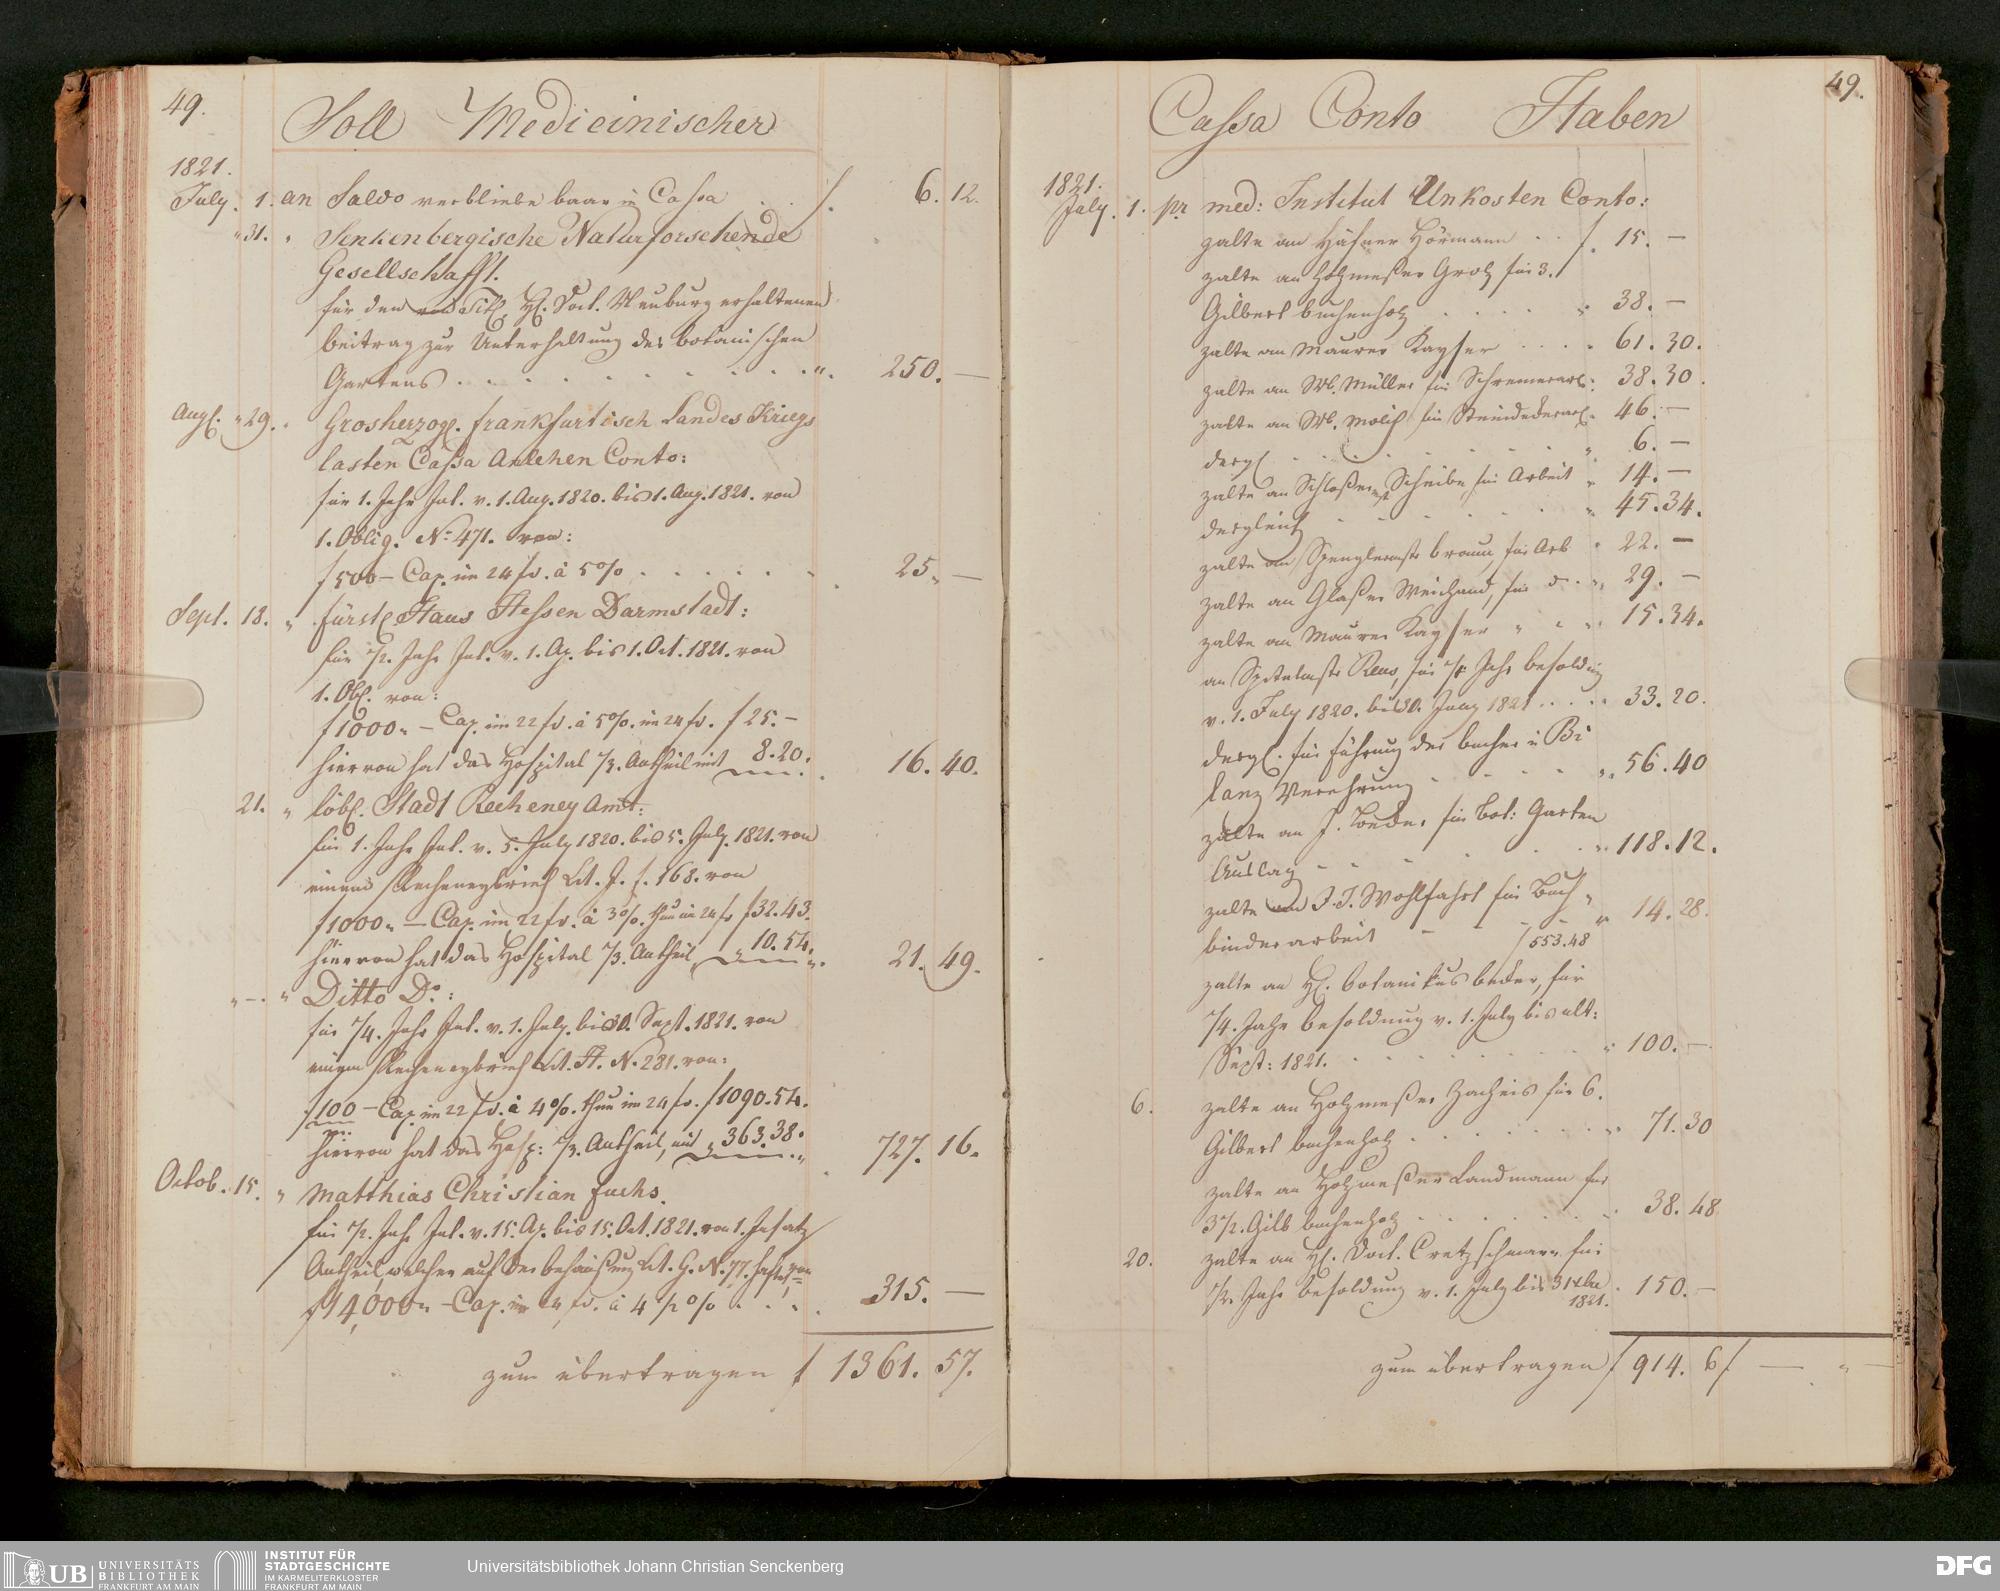 49.
Soll Medicinischer
1821.
July. 1. an Saldo verbliebe baar in Cassa . . f. 6. 12.
" 31. " Senkenbergische Naturforschende
Gesellschafft.
für den von Titl. H. Doct. Neuburg erhaltenen
beitrag zur Unterhaltung des botanischen
Gartens . . . . . . . . . . ". 250. —
Augt. " 29. " Grosherzogl. frankfurtisch Landes Kriegs
lasten Cassa Anlehen Conto:
für 1. Jahr Int. v. 1. Aug. 1820. bis 1. Aug. 1821. von
1. Oblig. No 471. von:
f 500 — Cap. im 24 fs. à 5 % . . . . . . 25. —
Sept. 18. " fürstl. Haus Hessen Darmstadt:
für 1/2. Jahr Int. v. 1. Ap. bis 1. Oct. 1821. von
1. Obl. von:
f 1000. — Cap. im 22 fs. à 5 %. im 24 fs. f 25. —
hiervon hat das Hospital 1/3. Antheil mit 8. 20. 16. 40.
21. " löbl. Stadt Recheney Amt:
für 1. Jahr Int. v. 5. July 1820. bis 5. July. 1821. von
einem Recheneybrief Lit. J. f. 168. von
f 1000. — Cap. im 22 fs. à 3 %. thun im 24 fs f 32. 43.
hiervon hat das Hospital 1/3. Antheil " 10. 54. 21. 49.
" — . " Ditto Do:
für 1/4. Jahr Int. v. 1. July. bis 30. Sept. 1821. von
einem Recheneybrief Lit. H. N. 281. von:
f 100 — Cap. im 22 fs. à 4 %. thun im 24 fs. f 1090. 54.
hiervon hat das Hosp: 1/3. Antheil, mit " 363. 38. 727. 16.
Octob. 15. " Matthias Christian Fuchs.
für 1/2. Jahr Int. v. 15. Ap. bis 15. Oct. 1821. von 1. Insatz
Antheil, welcher auf der behausung Lit. G. N. 77. haftet, von
f 14,000. — Cap. im 24 fs. à 4 1/2 % . . . . 315. —
zum übertragen f 1361. 57.
49.
Cassa Conto Haben
1821.
July. 1. pr med: Institut Unkosten Conto:
zalte an Häfner Hörmann . . f. 15. —
zalte an Holzmeßer Grotz für 3.
Gilbert buchenholz . . . . " 38. —
zalte an Maurer Kayser . . . . " 61. 30.
zalte an Mr. Müller für Schreinerarb: 38. 30.
zalte an Mr. Molif für Steindeckerarb " 46. —
dergl . . . . . . . . ". 6. —
zalte an Schloßermst Scheibe für Arbeit " 14. —
dergleich . . . . . . " 45. 34.
zalte an Spenglermstr braun, für Arb " 22. —
zalte an Glaßer Weichand, für do . . " 29. —
zalte an Maurer Kayser " " " 15. 34.
an Spitalmstr Reus, für 1/1 Jahr besoldung
v. 1. July 1820. bis 30. Juny 1821 . . . " 33. 20.
dergl. für führung der bucher u Bi
lanz Verehrung . . . . " 56. 40
zalte an J. Beder für bot: Garten
Auslag . . . . . . " 118. 12.
zalte an J. J. Wohlfahrt für Buch
binder arbeit . . . " 14. 28.
f 553. 48
zalte an H. botanikus beder, für
1/4. Jahr besoldung v. 1. July bis ult:
Sept: 1821. . . . . . . . " 100. —
6. zalte an Holzmeßer Hacheis für 6.
Gilbert buchenholz . . . . . . . " 71. 30
zalte an Holzmeßer Landmann für
3 1/2. Gilb buchenholz . . . . . . " 38. 48
20. zalte an H. Doct. Cretzschmarr für
1/2 Jahr besoldung v. 1. July bis 31 xbr
1821. . 150. —
zum übertragen f 914. 6 f — " —
UB UNIVERSITÄTS
BIBLIOTHEK
FRANKFURT AM MAIN
INSTITUT FÜR
STADTGESCHICHTE
IM KARMELITERKLOSTER
FRANKFURT AM MAIN
Universitätsbibliothek Johann Christian Senckenberg
DFG